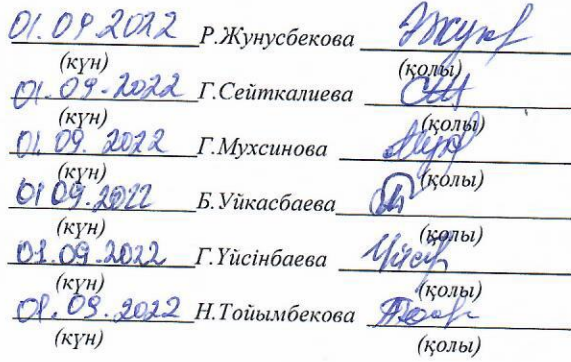 01.09.2022 Р.Жунусбекова
(күн) (қолы)
01.09.2022 Г.Сейткалиева
(күн) (қолы)
01.09.2022 Г.Мухсинова
(күн) (қолы)
01 09.2022 Б.Уйкасбаева
(күн) (қолы)
01.09.2022 Г.Үйсінбаева
(күн) (қолы)
01.09.2022 Н.Тойымбекова
(күн) (қолы)